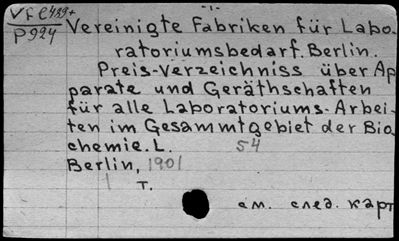 VFC489+
P924
Vereinigte Fabriken für Labo-
ratoriumsbedarf. Berlin.
Preis-Verzeichniss über Ap
parate und Geräthschaften
für alle Laboratoriums-Arbei-
ten im Gesammtgebiet der Bio
chemie. L. 54
Berlin, 1901
1 т.
см. след. карт